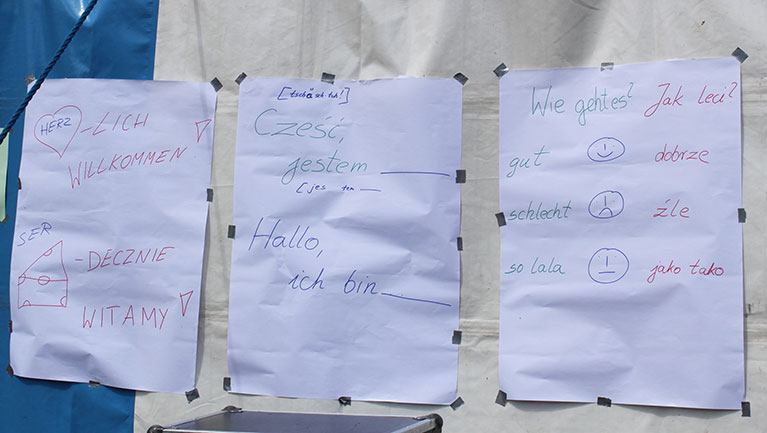 HERZ -LICH
WILLKOMMEN!
SER
-DECZNIE
WITAMY!
[tschäsch tch!]
Cześć,
jestem ____
[jes tem ___
Hallo,
ich bin ____
Wie geht es? Jak leci?
gut dobrze
schlecht źle
so lala jako tako